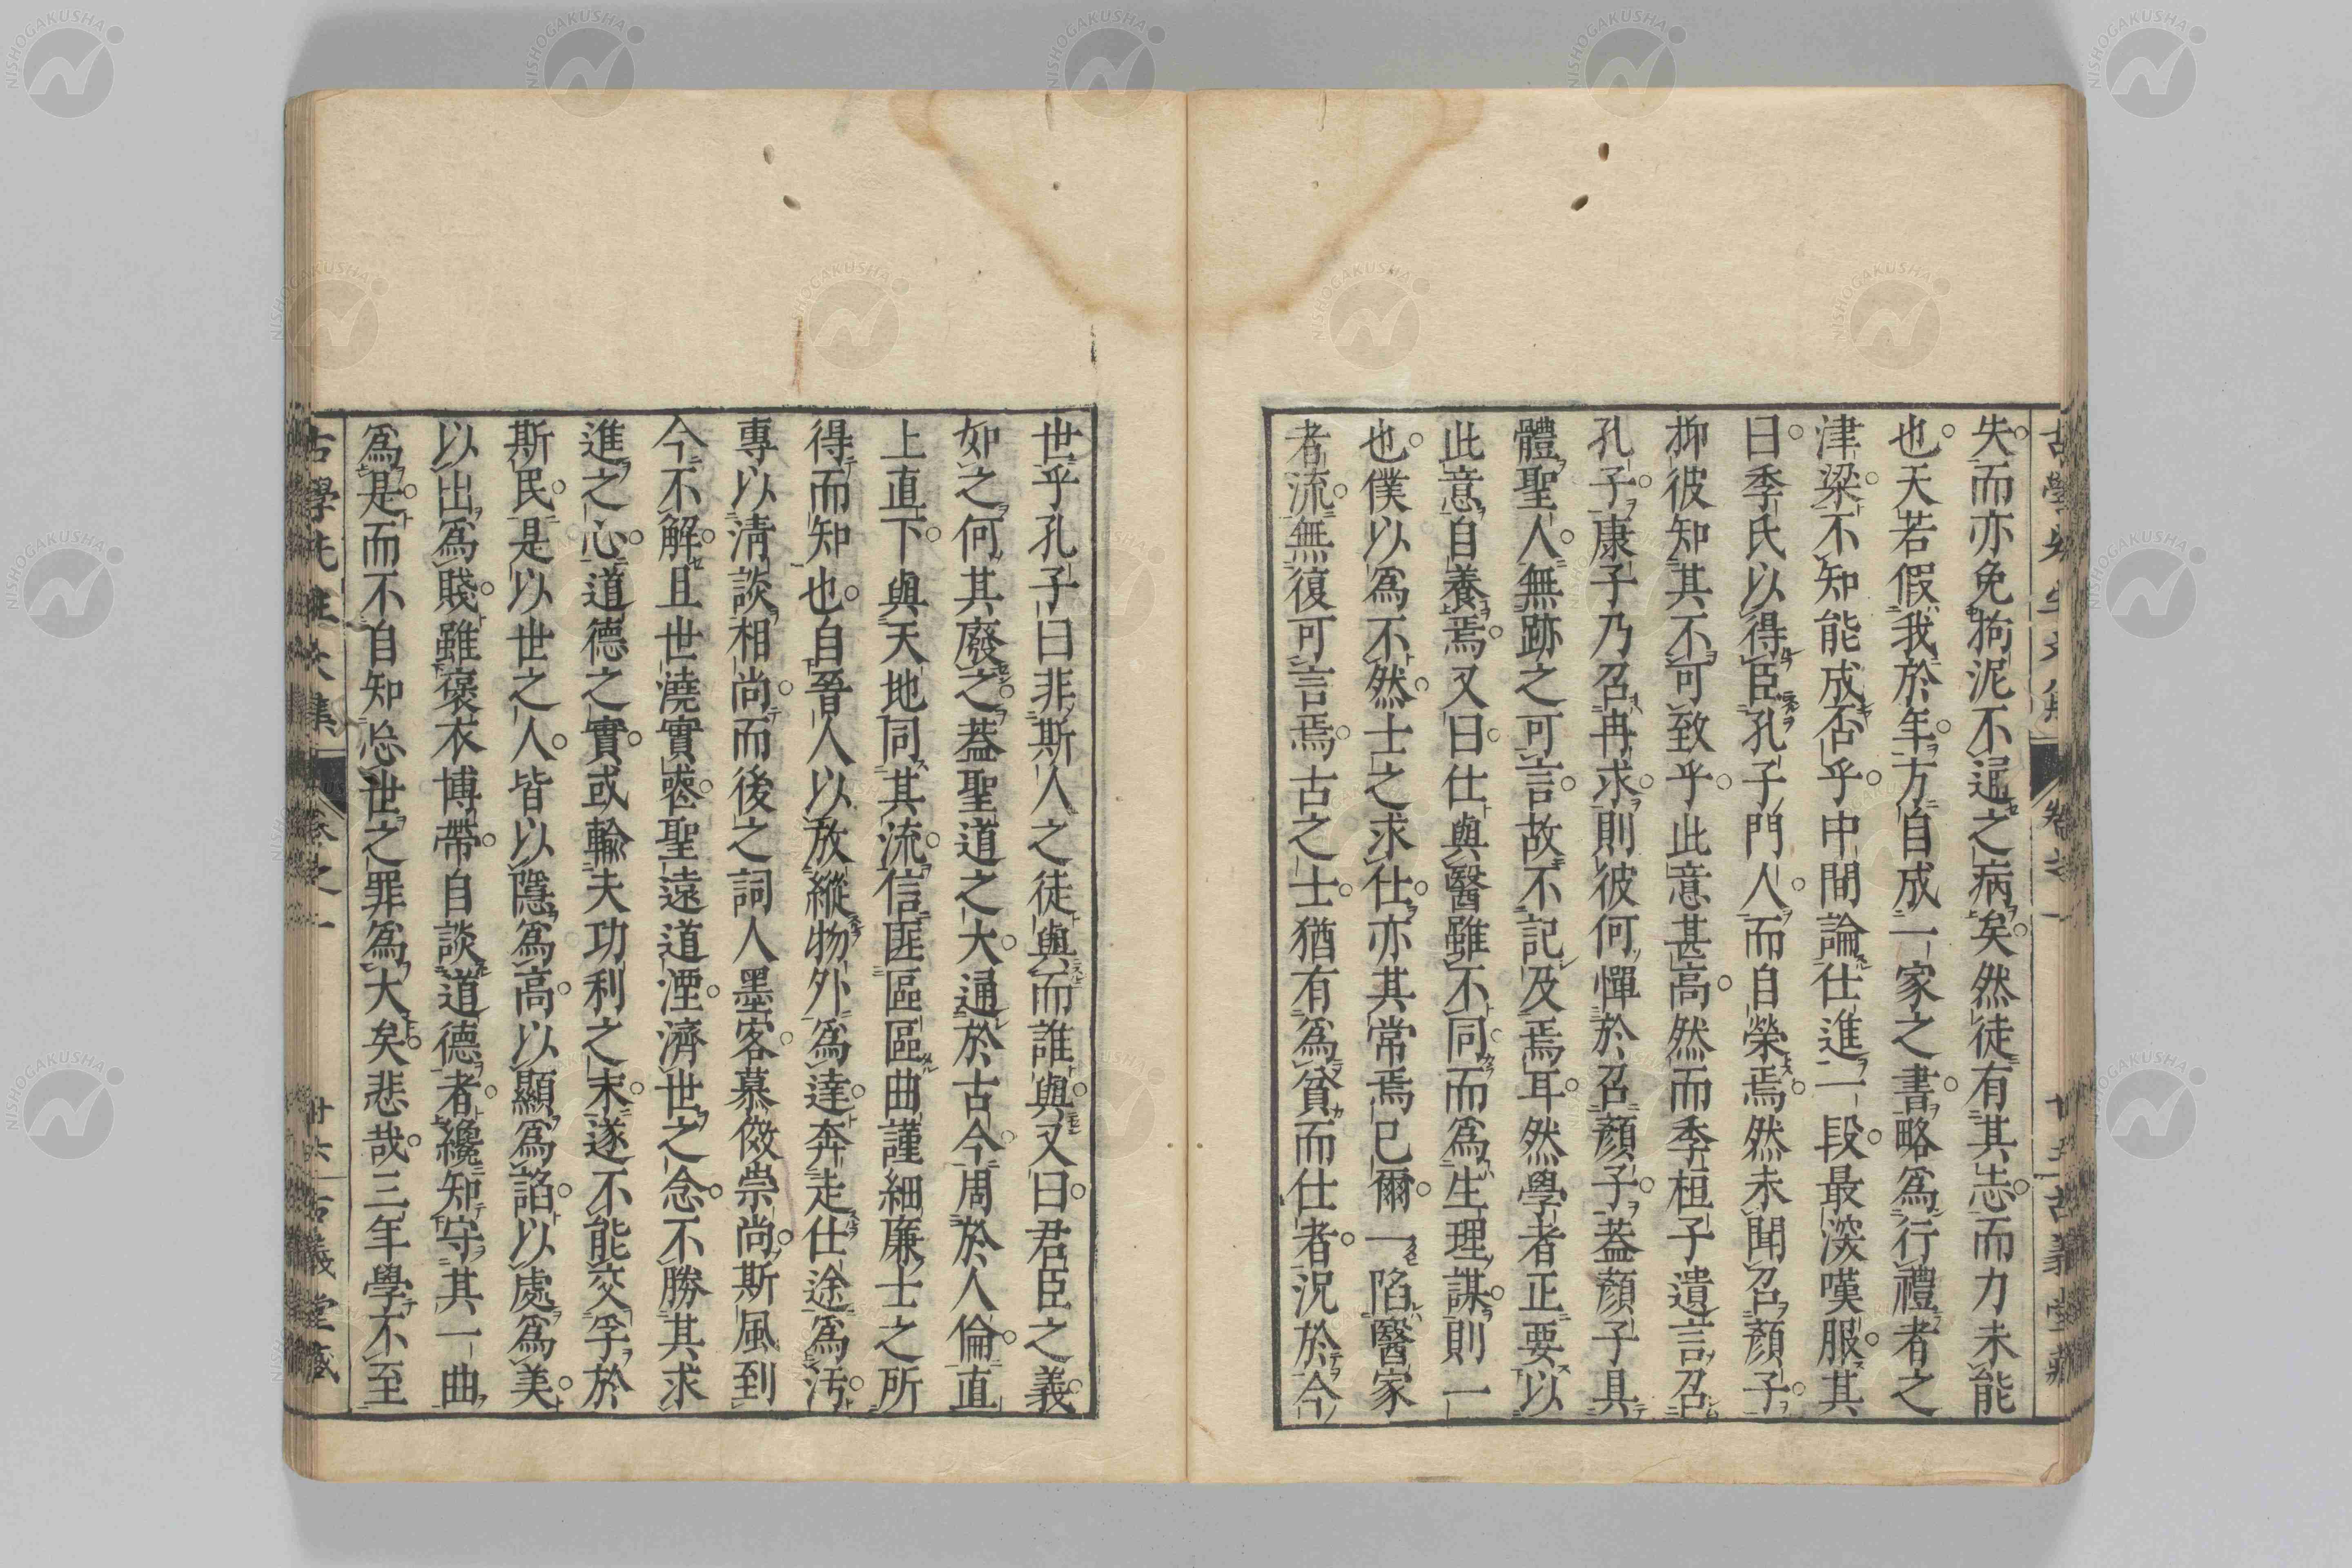 失而亦免拘泥不通之病矣然徒有其志而力未能
也天若假我於年方自成一家之書略為行禮者之
津梁不知能成否乎中間論仕進一段最深嘆服其
曰季氏以得臣孔子門人而自榮焉然未聞召顏子
抑彼知其不可致乎此意甚高然而季桓子遺言召
孔子康子乃召冉求則彼何憚於召顏子蓋顏子具
體聖人無跡之可言故不記及焉耳然學者正要以
此意自養焉又曰仕與醫雖不同而為生理謀則一
也僕以為不然士之求仕亦其常焉已爾一陷醫家
者流無復可言焉古之士猶有為貧而仕者況於今
世乎孔子曰非斯人之徒與而誰與又曰君臣之義
如之何其廢之蓋聖道之大通於古今周於人倫直
上直下與天地同其流信匪區區曲謹細廉士之所
得而知也自晉人以放縱物外為達奔走仕途為汚
專以淸談相尚而後之詞人墨客慕倣崇尚斯風到
今不解且世澆實喪聖遠道湮濟世之念不勝其求
進之心道德之實或輸夫功利之末遂不能交孚於
斯民是以世之人皆以隱為高以顯為諂以處為美
以出為賤雖褒衣博帶自談道德者纔知守其一曲
為是而不自知忘世之罪為大矣悲哉三年學不至
古學先生文集 卷之一 廿六 古義堂藏